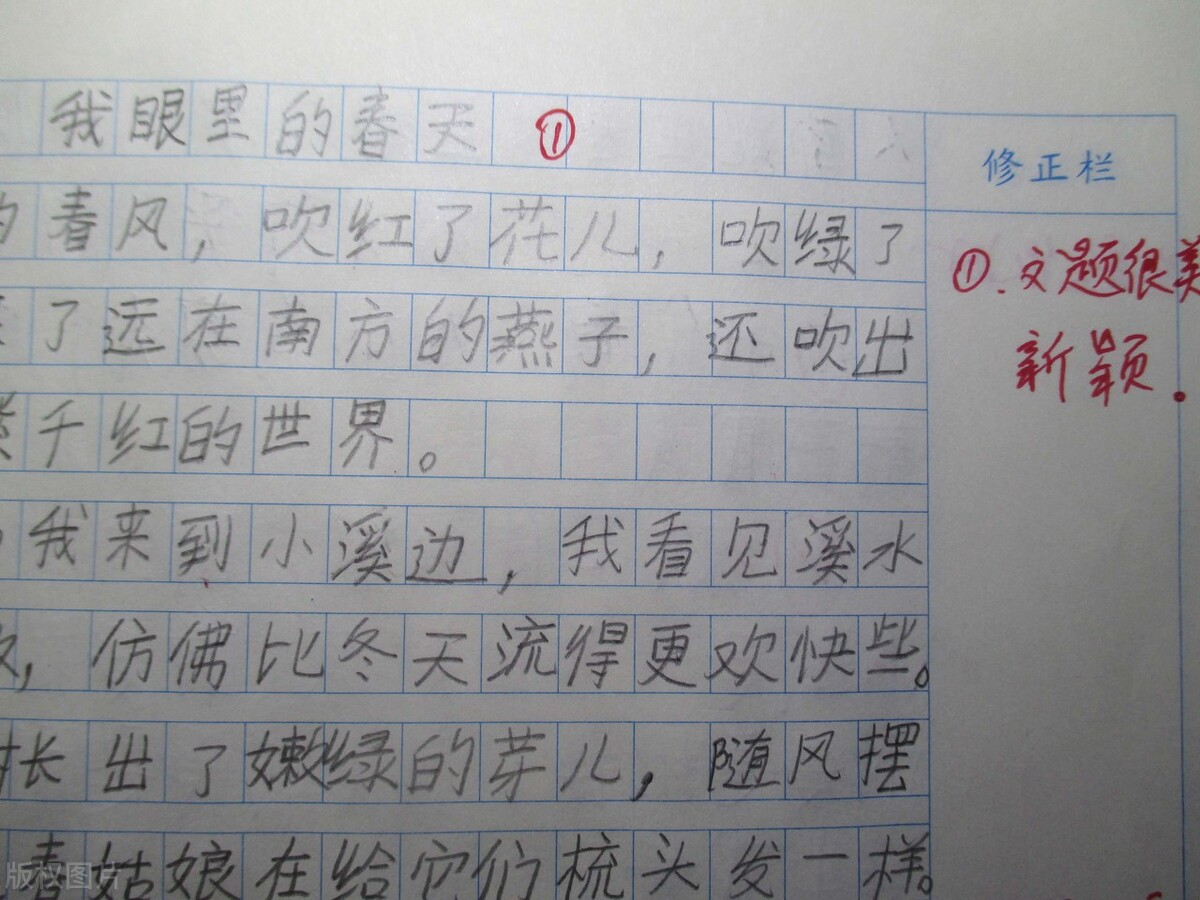 我眼里的春天 ①
春风，吹红了花儿，吹绿了
了远在南方的燕子，还吹出
千红的世界。
我来到小溪边，我看见溪水
，仿佛比冬天流得更欢快些。
长出了嫩绿的芽儿，随风摆
春姑娘在给它们梳头发一样。
修正栏
①.文题很美
新颖.
版权图片